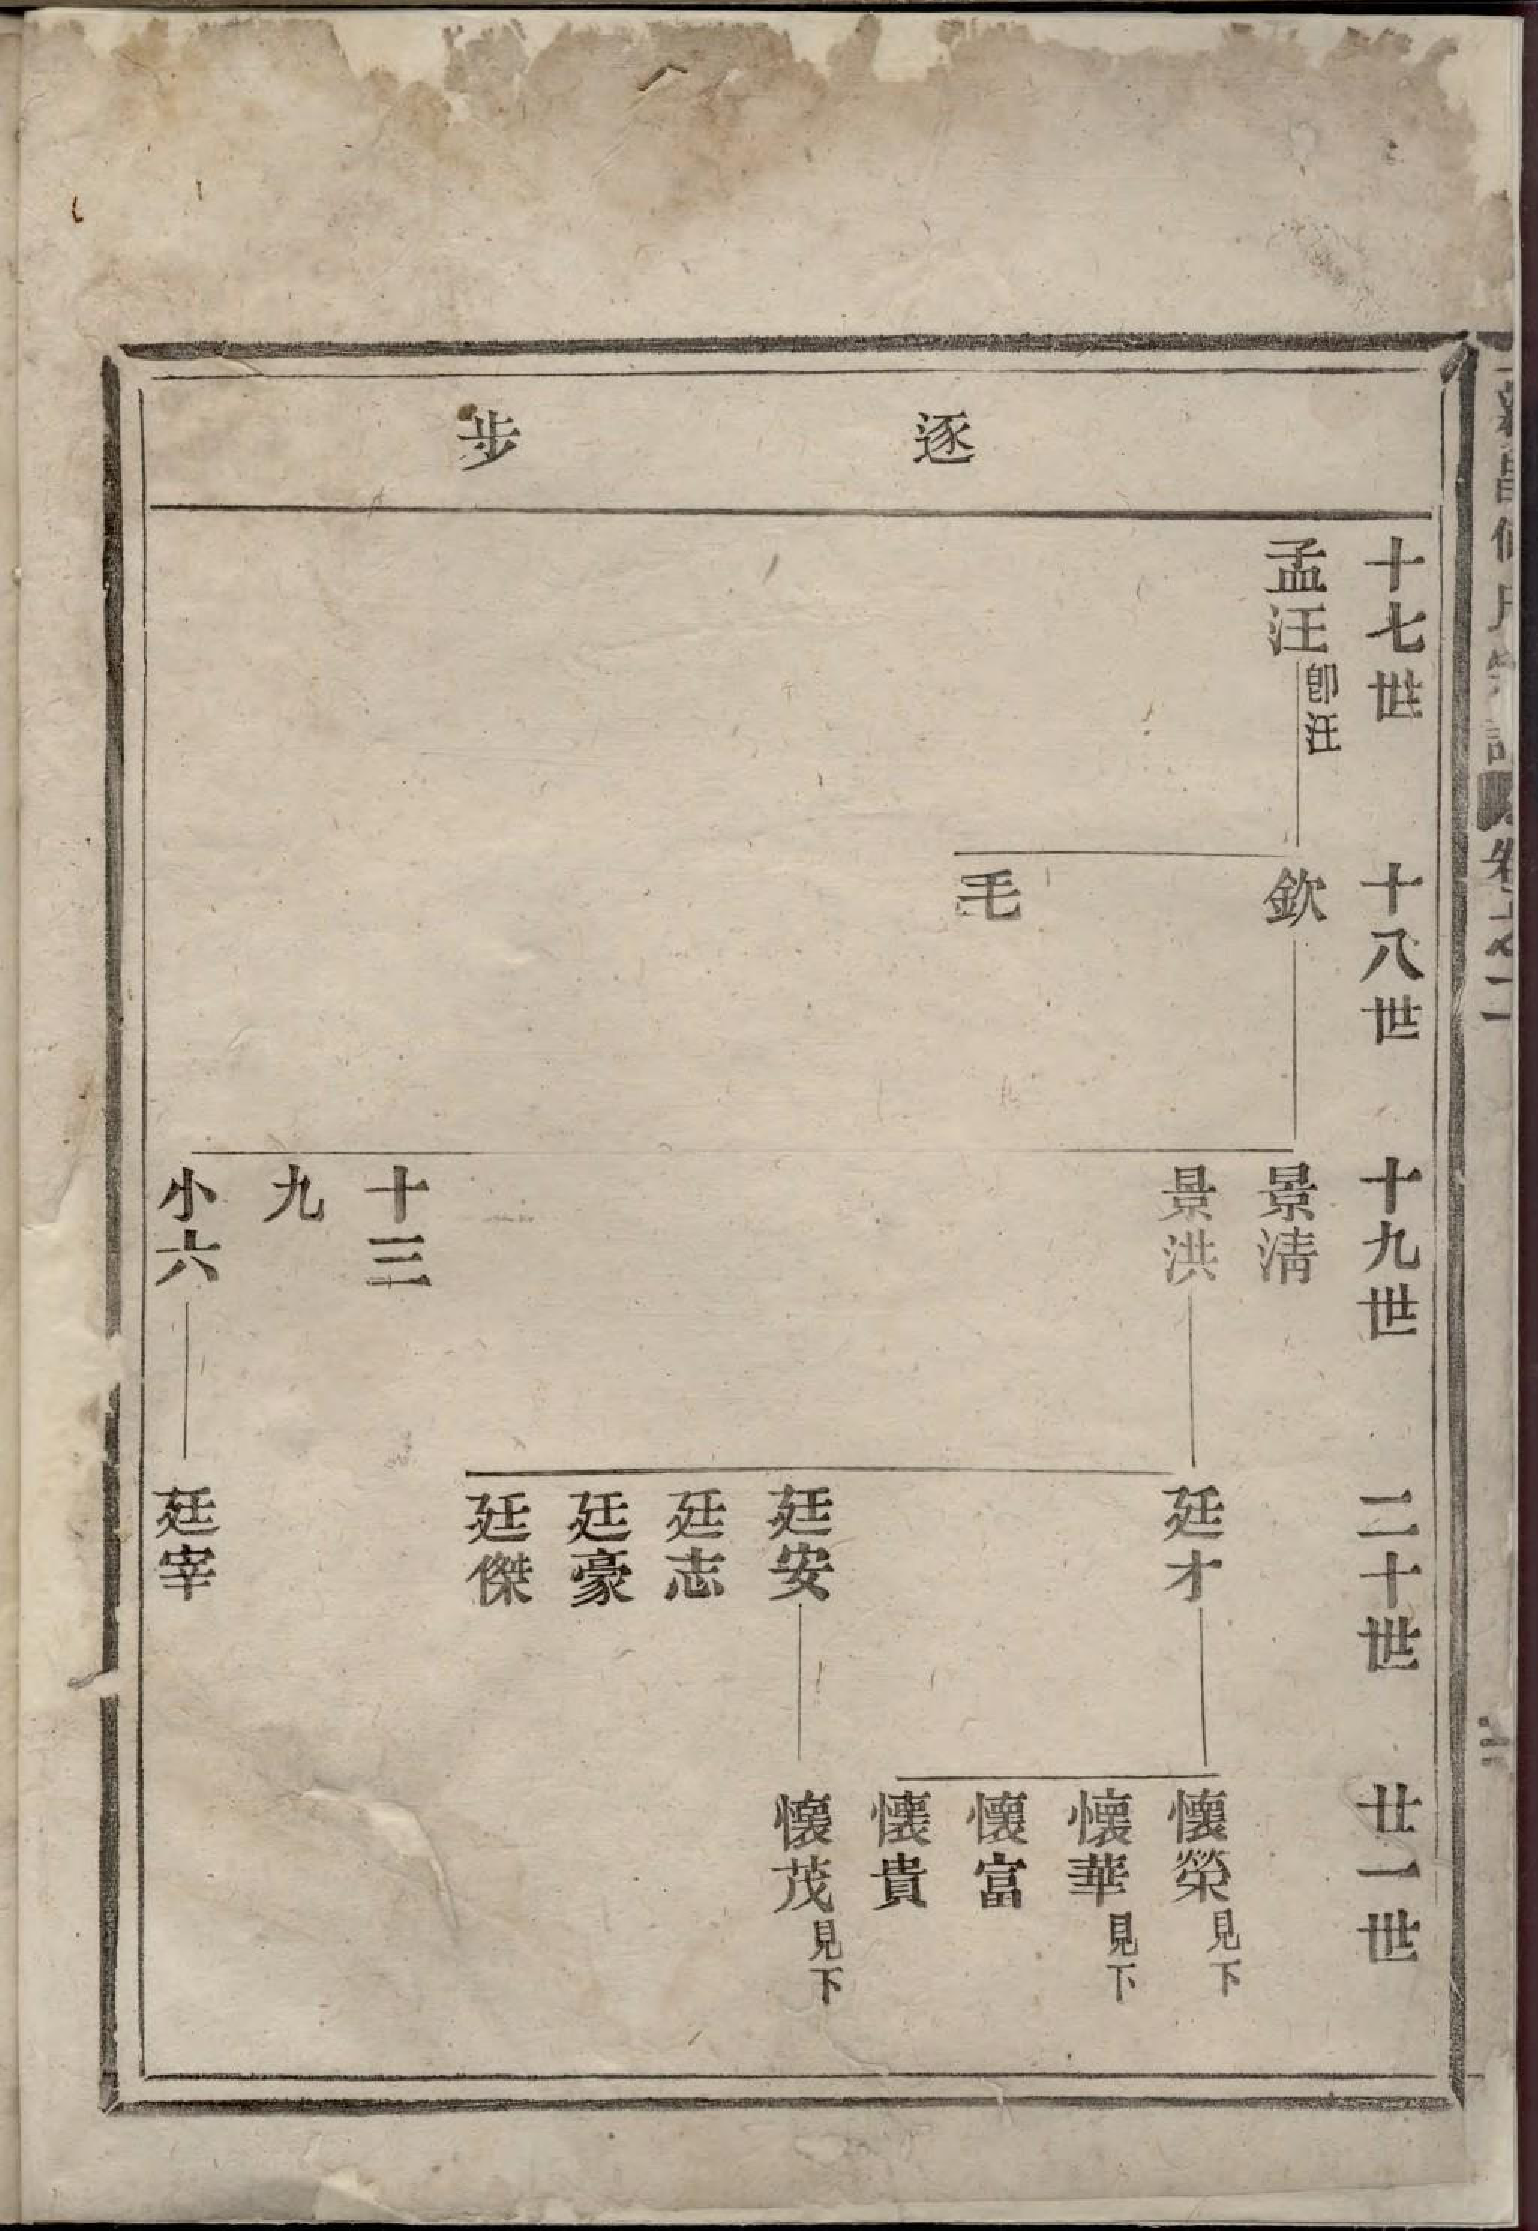 逐步
十七世
十八世
十九世
二十世
廿一世
孟汪 卽汪
欽
毛
景清
景洪
十三
九
小六
廷才
廷安
廷志
廷豪
廷傑
廷宰
懷榮 見下
懷華 見下
懷富
懷貴
懷茂 見下